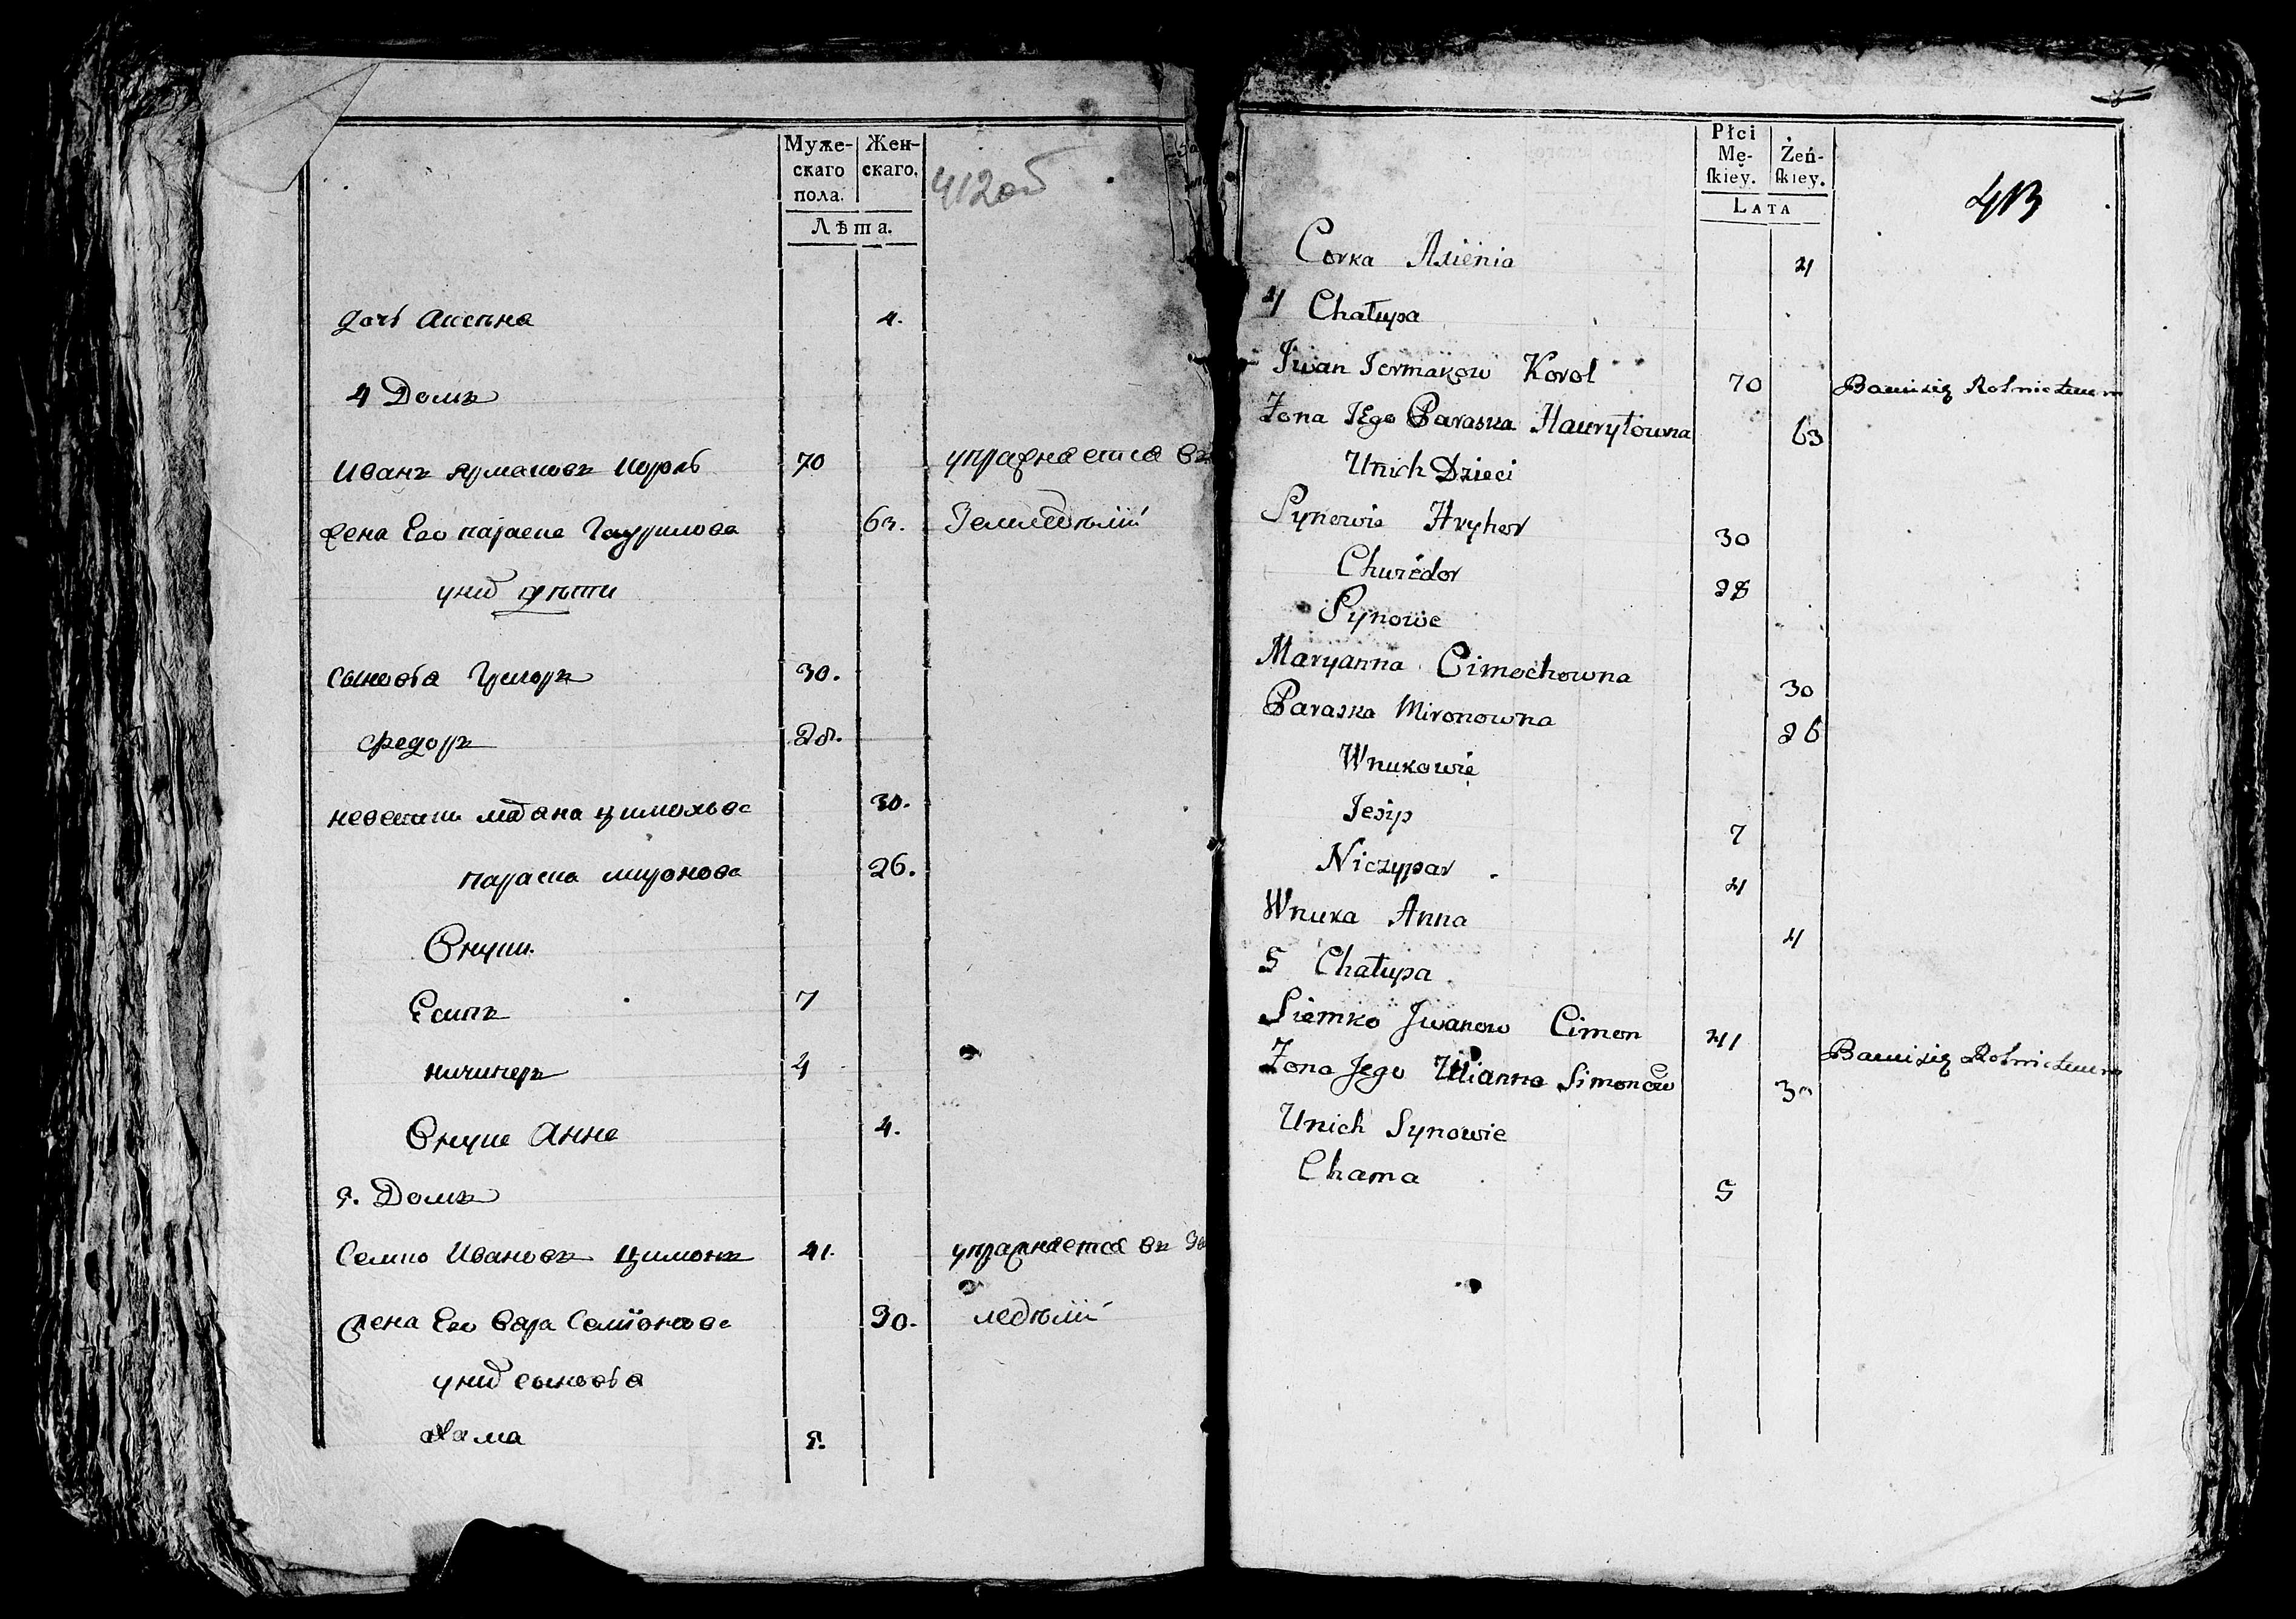 Муже-
скаго
пола.
Жен-
скаго.
Лѣта.
412об
дочь Аксѣна 4.
4 Домъ
Иванъ Ярмаковъ Король 70 упражняется въ
жена Его параска Гаурилова 63. Земледѣлїи
уних дѣти
сыновья Григоръ 30.
Федоръ 28.
невестки цимохова 30.
параска миронова 26.
Внуки.
Есипъ 7
ничипоръ 4
Внука Анна 4.
5. Домъ
Семко Ивановъ Цимонъ 41. упражняется въ Зе
жена Его Семїонова 30. леделїи
уних сыновья
Хама 5.
Płci
Mę-
ſkiey.
Żeń-
ſkiey.
LATA
413
Corka Axienia 4
4 Chałupa
Jwan Jermakow Korol 70 Bawisię Rolnictwem
Zona Jego Paraska Hawryłowna 63
Unich Dzieci
Synowie Hryhor 30
Chwiedor 28
Synowe
Maryanna Cimochowna 30
Paraska Mironowna 26
Wnukowie
Jesip 7
Niczypar 4
Wnuka Anna 4
5 Chałupa
Siemko Jwanow Cimon 41 Bawisię Rolnictwem
Zona Jego Ulianna Simonow 30
Unich Synowie
Chama 5